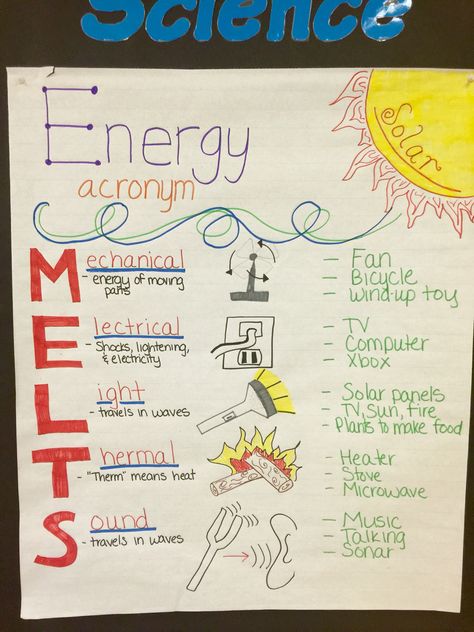 Science
Energy
acronym
Solar
Mechanical
- energy of moving
parts
- Fan
- Bicycle
- Wind-up toy
Electrical
- Shocks, lightening,
& electricity
- TV
- Computer
- Xbox
Light
- travels in waves
- Solar panels
- TV, Sun, fire
- Plants to make food
Thermal
- "Therm" means heat
- Heater
- Stove
- Microwave
Sound
- travels in waves
- Music
- Talking
- Sonar